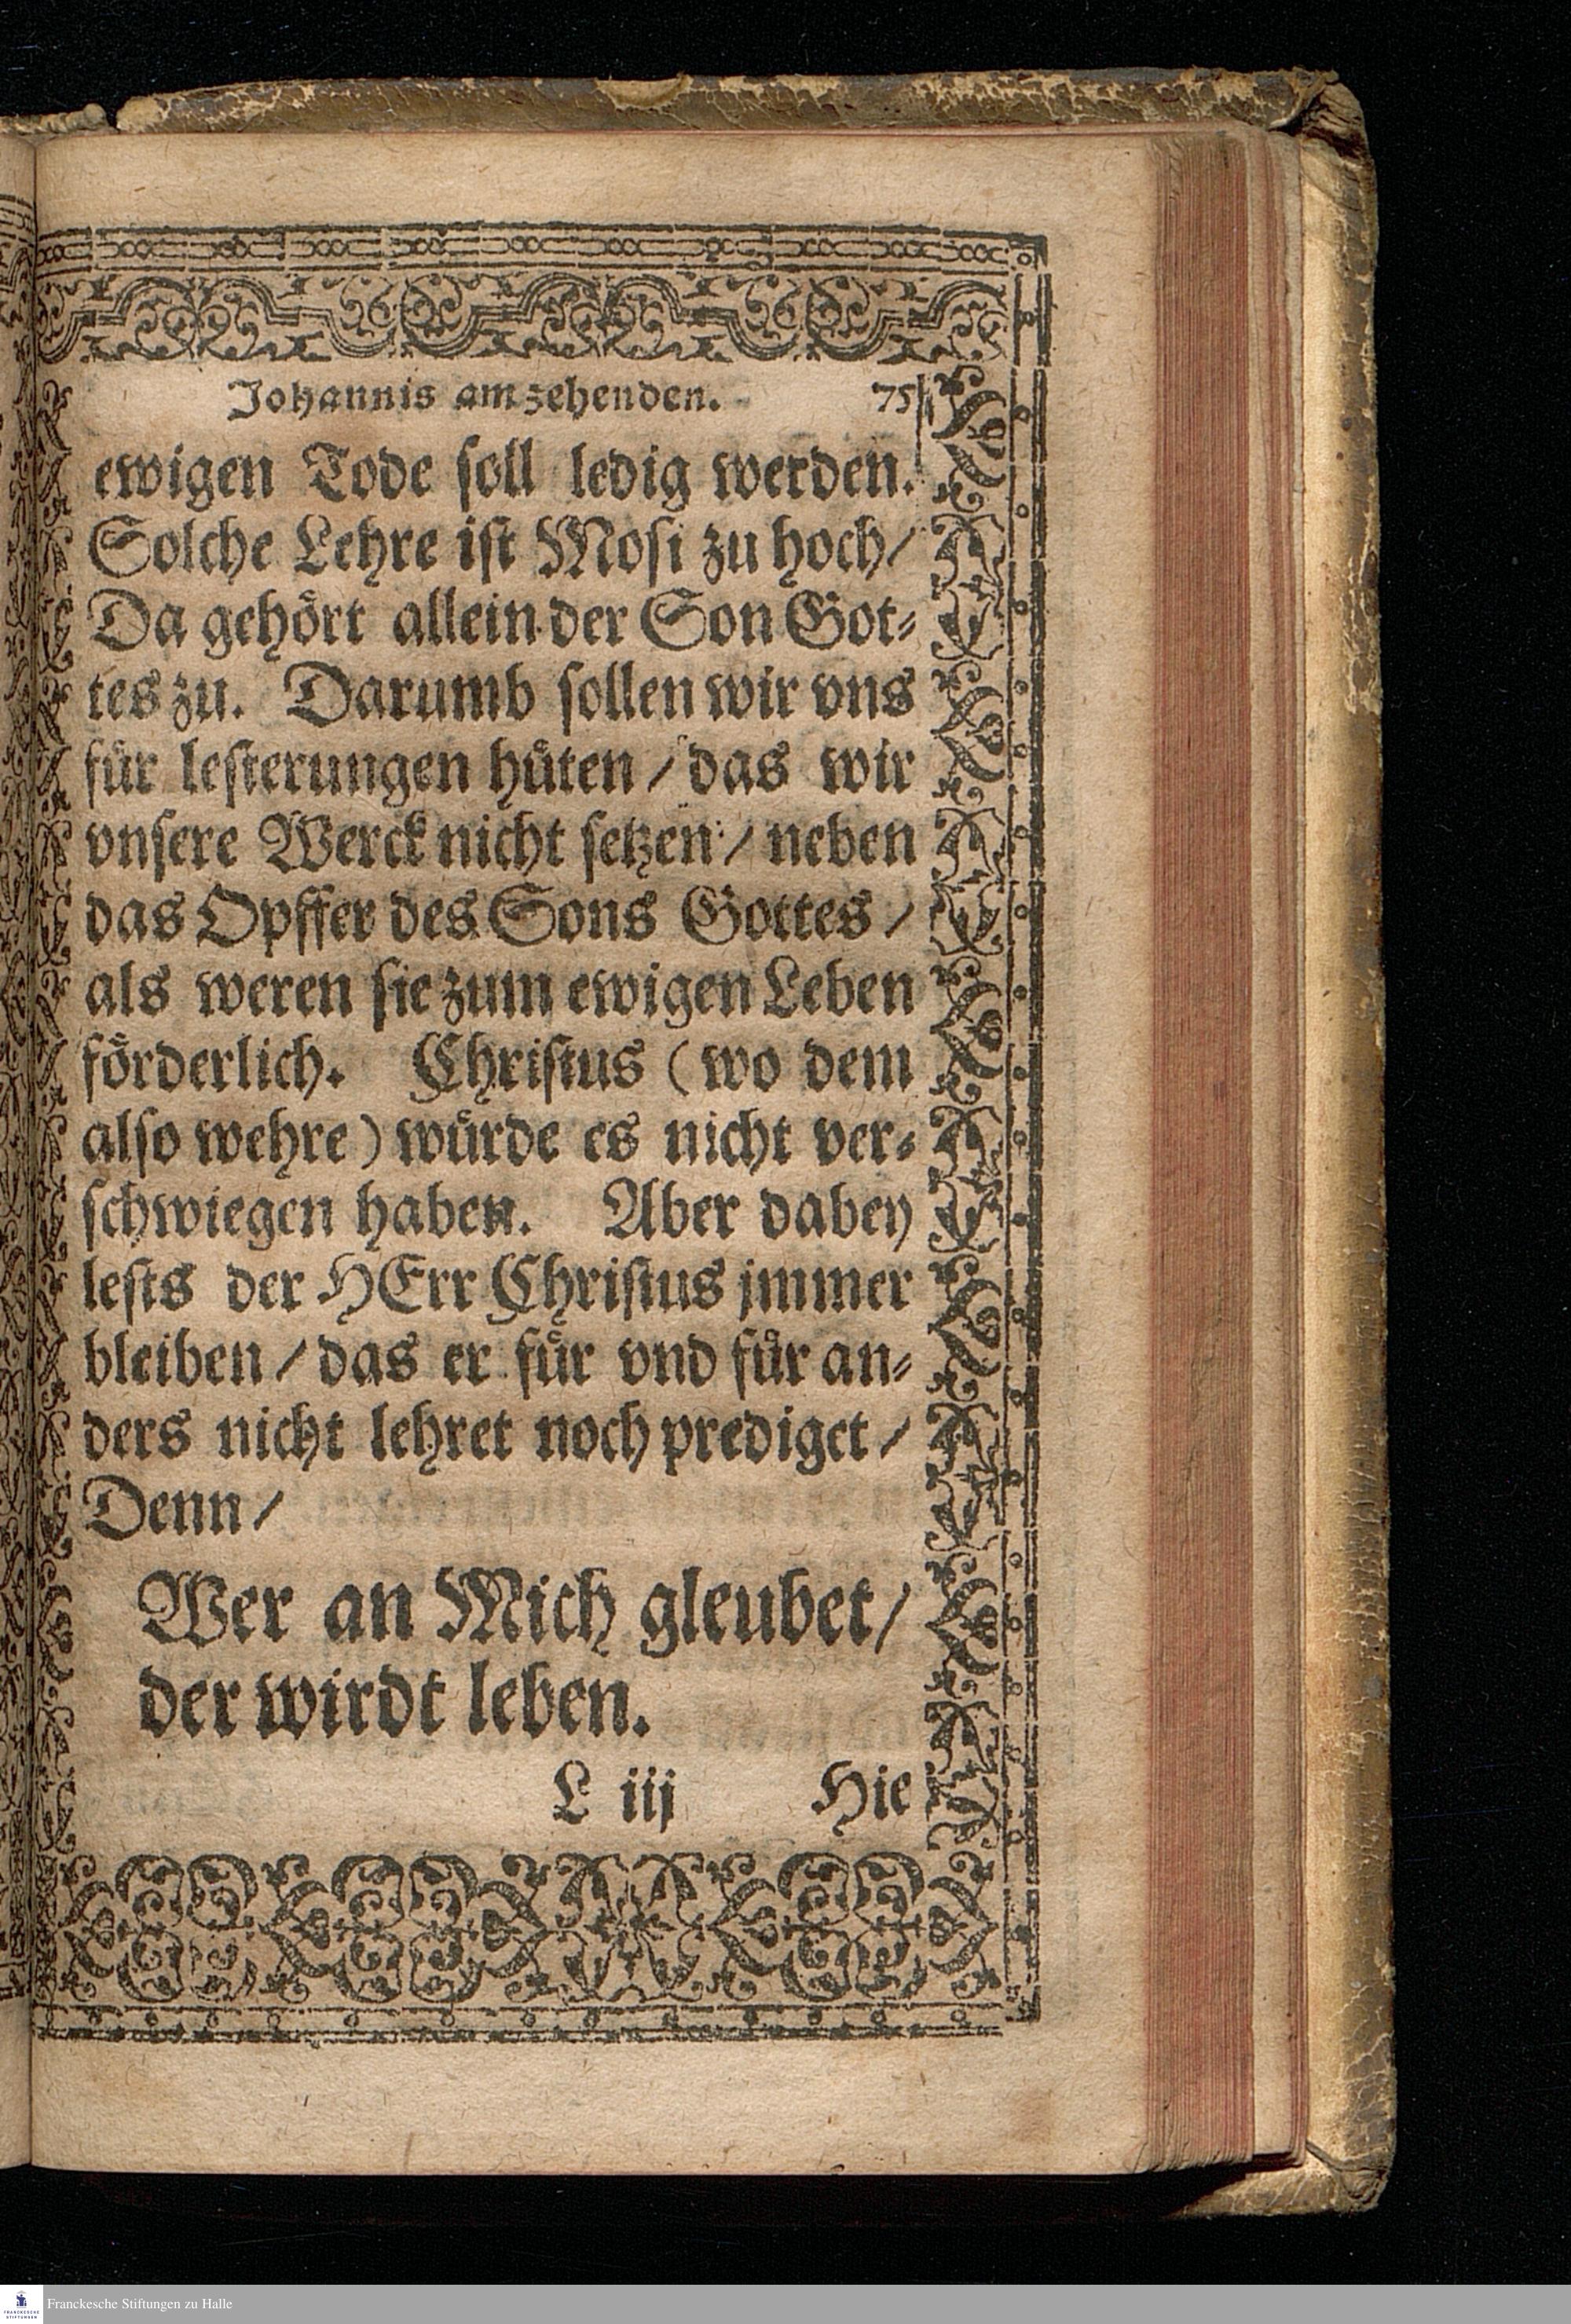 Johannis am zehenden. 75
ewigen Tode soll ledig werden.
Solche Lehre ist Mosi zu hoch/
Da gehört allein der Son Got-
tes zu. Darumb sollen wir vns
für lesterungen hüten / das wir
vnsere Werck nicht setzen / neben
das Opffer des Sons Gottes /
als weren sie zum ewigen Leben
förderlich. Christus (wo dem
also wehre) würde es nicht ver-
schwiegen haben. Aber dabey
lests der HErr Christus jmmer
bleiben / das er für vnd für an-
ders nicht lehret noch prediget /
Denn /
Wer an Mich gleubet/
der wirdt leben.
L iij Hie
FRANCKESCHE STIFTUNGEN
Franckesche Stiftungen zu Halle